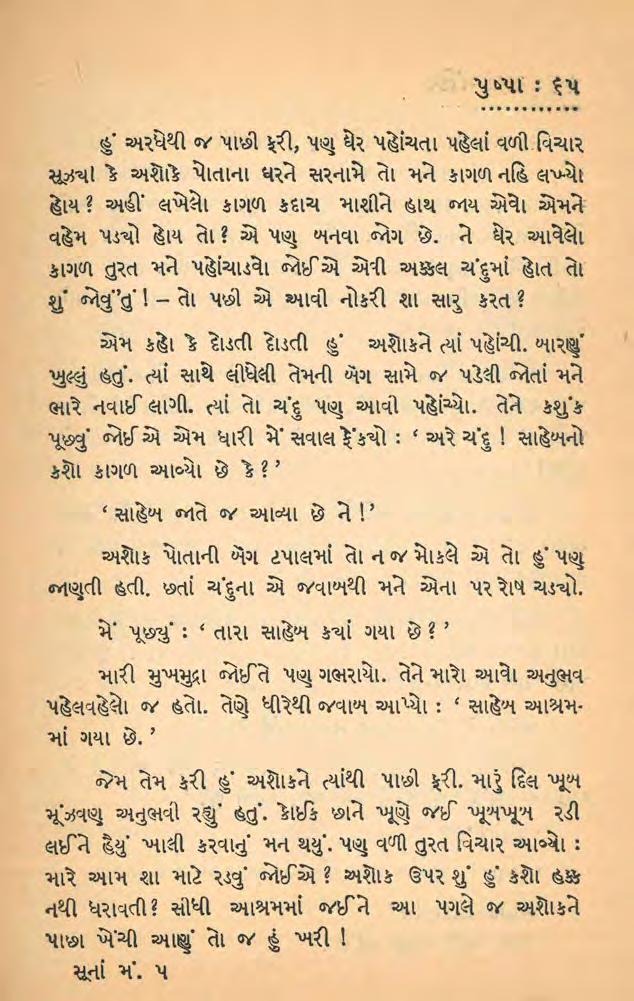 પુષ્પા : ૬૫
હું અરધેથી જ પાછી ફરી, પણ ઘેર પહોંચતા પહેલાં વળી વિચાર
સૂઝ્યો કે અશોકે પોતાના ઘરને સરનામે તો મને કાગળ નહિ લખ્યો
હોય? અહીં લખેલો કાગળ કદાચ માશીને હાથ જાય એવો એમને
વહેમ પડ્યો હોય તો? એ પણ બનવા જોગ છે. ને ઘેર આવેલો
કાગળ તુરત મને પહોંચાડવો જોઈએ એવી અક્કલ ચંદુમાં હોત તો
શું જોવું'તું! – તો પછી એ આવી નોકરી શા સારુ કરત?
એમ કહો કે દોડતી દોડતી હું અશોકને ત્યાં પહોંચી. બારણું
ખુલ્લું હતું. ત્યાં સાથે લીધેલી તેમની બૅગ સામે જ પડેલી જોતાં મને
ભારે નવાઈ લાગી. ત્યાં તો ચંદુ પણ આવી પહોંચ્યો. તેને કશુંક
પૂછવું જોઈએ એમ ધારી મેં સવાલ ફેંક્યો : ‘ અરે ચંદુ ! સાહેબનો
કશો કાગળ આવ્યો છે કે?’
‘ સાહેબ જાતે જ આવ્યા છે ને!’
અશોક પોતાની બૅગ ટપાલમાં તો ન જ મોકલે એ તો હું પણ
જાણતી હતી. છતાં ચંદુના એ જવાબથી મને એના પર રોષ ચડ્યો.
મેં પૂછ્યું : ‘ તારા સાહેબ ક્યાં ગયા છે?’
મારી મુખમુદ્રા જોઈ તે પણ ગભરાયો. તેને મારો આવો અનુભવ
પહેલવહેલો જ હતો. તેણે ધીરેથી જવાબ આપ્યો : ‘ સાહેબ આશ્રમ-
માં ગયા છે.’
જેમ તેમ કરી હું અશોકને ત્યાંથી પાછી ફરી. મારું દિલ ખૂબ
મૂંઝવણ અનુભવી રહ્યું હતું. કોઈક છાને ખૂણે જઈ ખૂબખૂબ રડી
લઈને હૈયું ખાલી કરવાનું મન થયું. પણ વળી તુરત વિચાર આવ્યો :
મારે આમ શા માટે રડવું જોઈએ? અશોક ઉપર શું હું કશો હક્ક
નથી ધરાવતી? સીધી આશ્રમમાં જઈને આ પગલે જ અશોકને
પાછા ખેંચી આણું તો જ હું ખરી !
સૂનાં મં. ૫